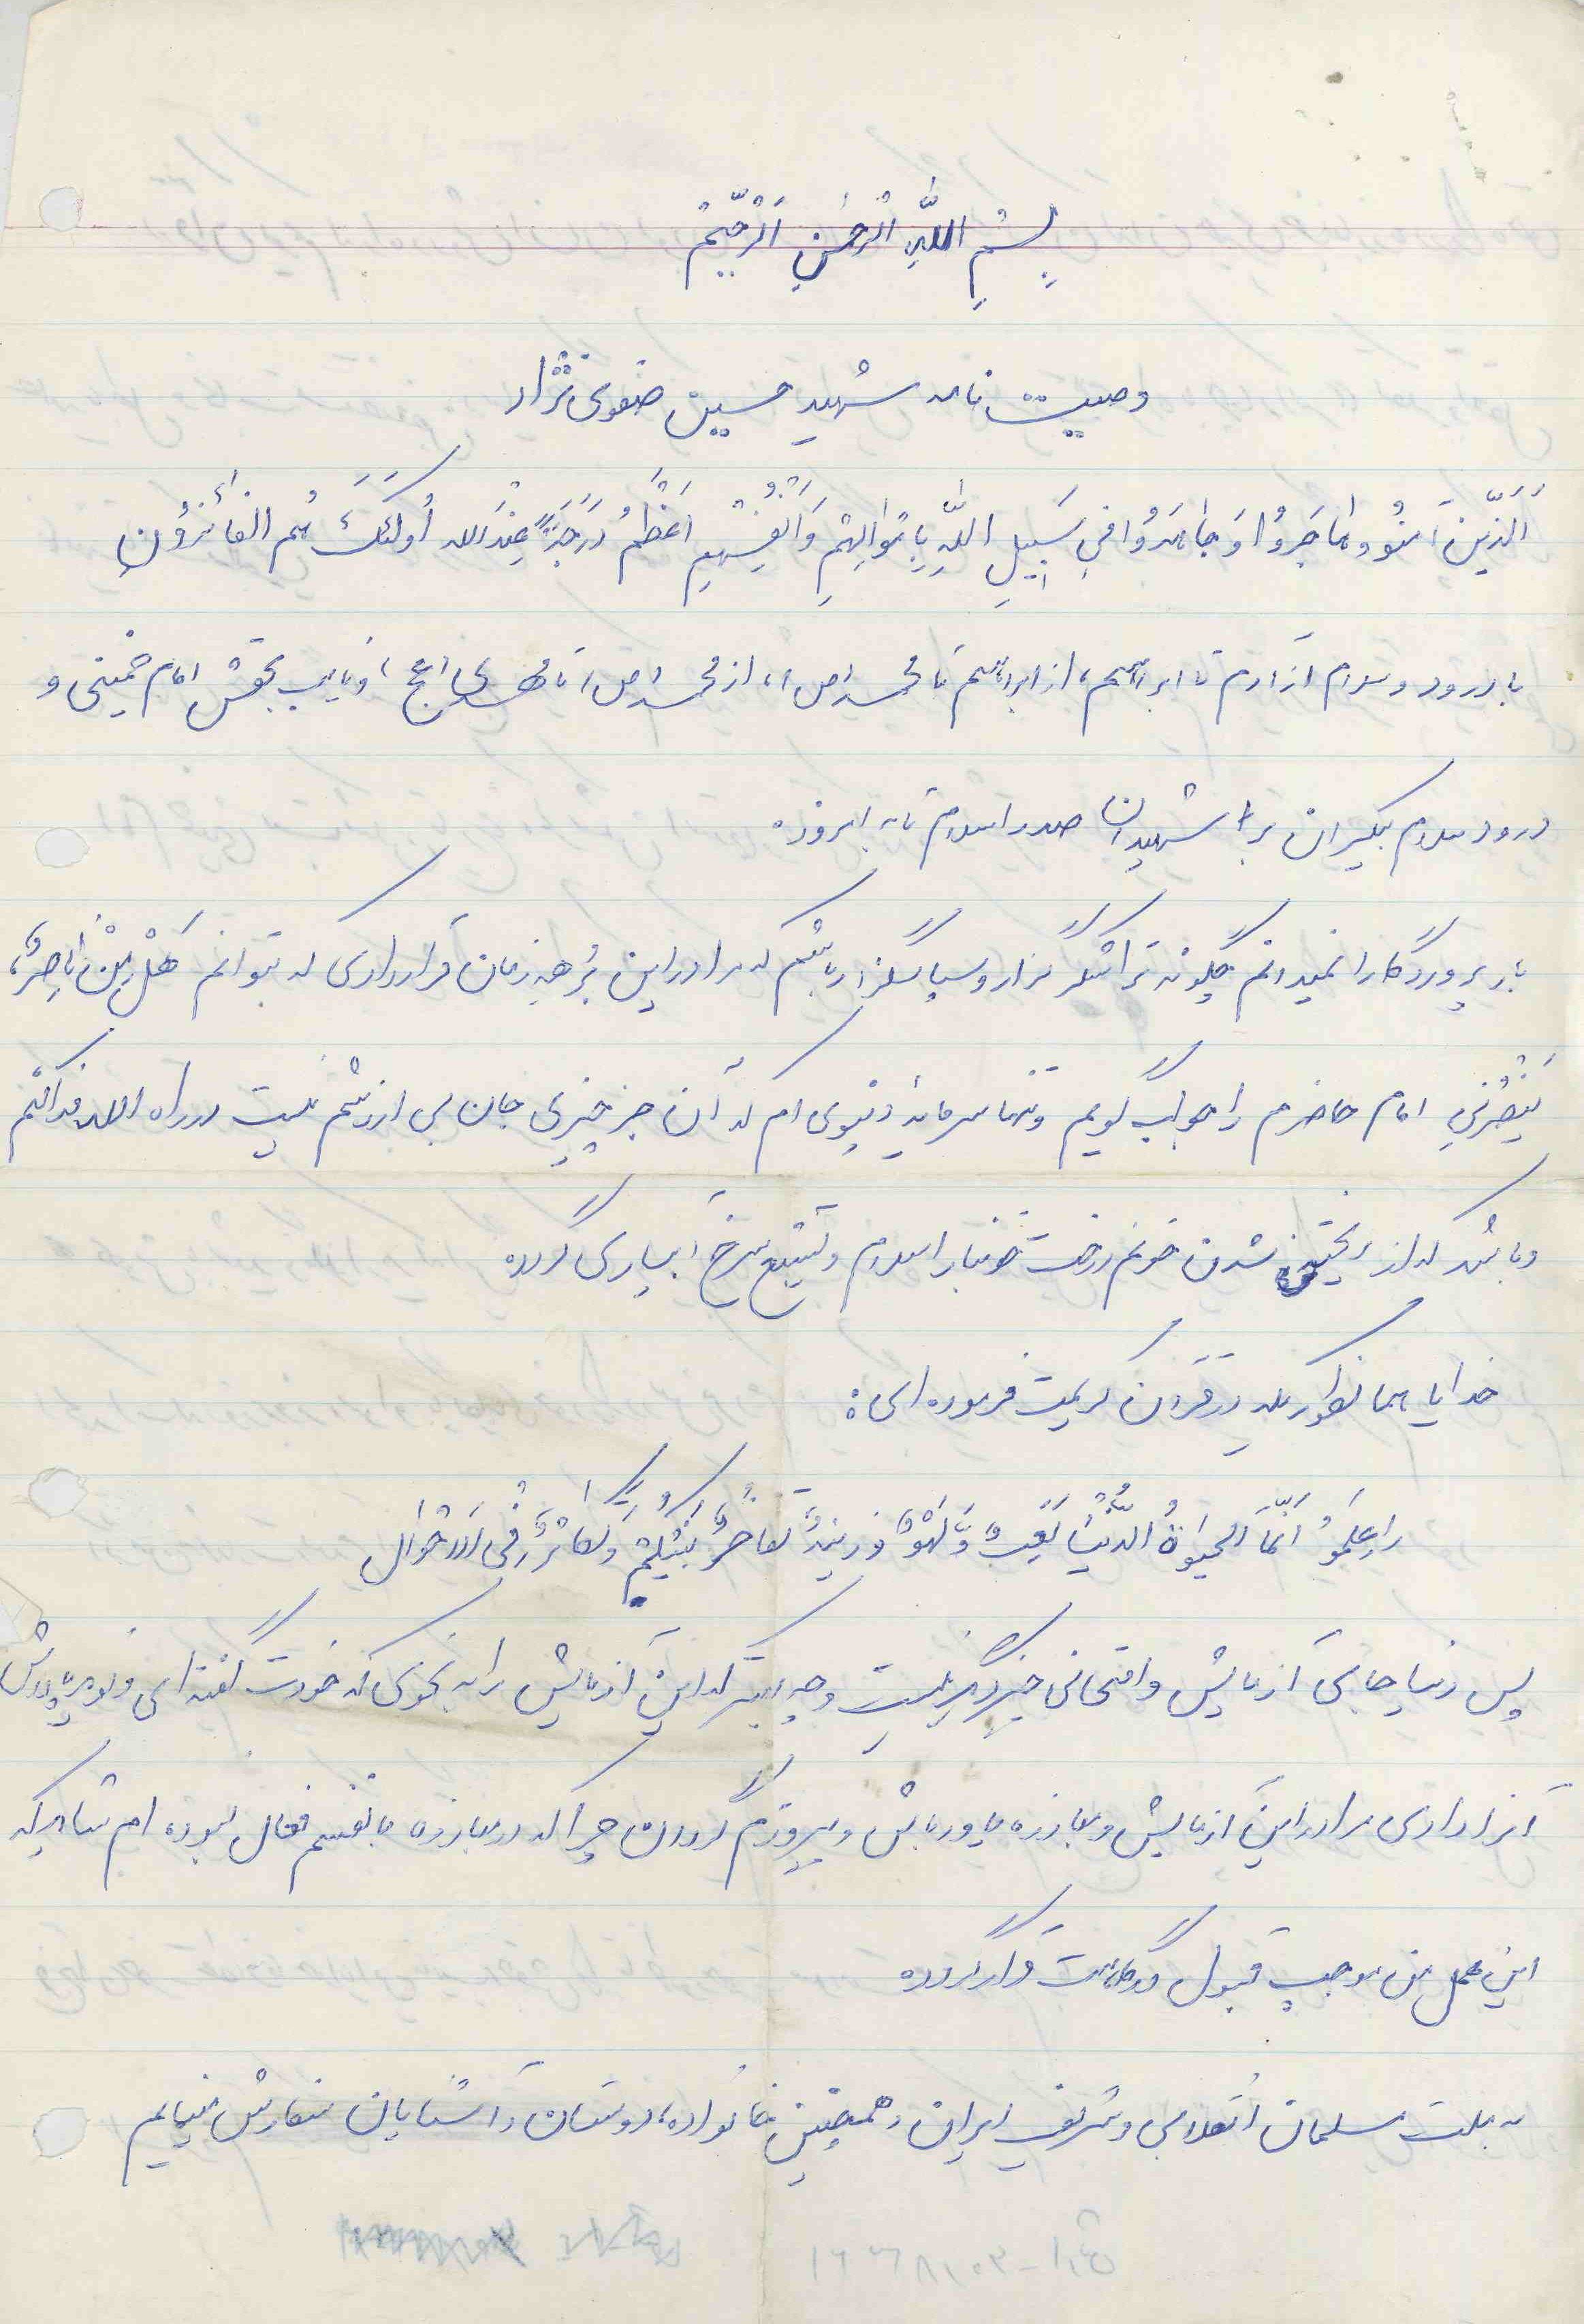 بِسْمِ اللَّهِ الرَّحْمنِ الرَّحیّمْ
وصیت نامه شهید حسین صفوی نژاد
اَلَّذّینَ آمَنُو وَ هاجَروُا وَ جاهَدَوُا فی سَبیلِ اللّهِ بِاَمْوالِهِمْ وَ اَنْفُسِهِمْ اَعْظَمُ دَرَجَةً عِنْدَالله اُولئِکَ هُم الفائزُونِ
با درود و سلام از آدم تا ابراهیم، از ابراهیم تا محمد (ص)، از محمد (ص) تا مهدی (عج) و نایب بحقش امام خمینی و
درود سلام بیکران بر شهیدان صدر اسلام تا به امروز.
بار پروردگارا نمیدانم چگونه ترا شکر گزار و سپاسگزار باشم که مرا در این بُرهه زمان قرار دادی که بتوانم هَلْ مِنْ ناصِرٌ
یَنْصُرُنی امام حاضرم را جواب گویم و تنها سرمایۀ دنیوی ام که آن جز چیزی جان بی ارزشم نیست در راه الله فدا کنم
و باشد که از ریختن شدن خونم درخت خونبار اسلام و تشیع سرخ آبیاری گردد
خدایا همانطور که در قرآن کریمت فرموده ای:
راِعلَموُ اَنَّمَا الحیوةُ الدُّنْیٰا لَعِبٌ وَ لَهْوٌ وَ زینَةٌ تَفاخُرٌ بَیْنَکُمْ وَ تَکاثُرٌ فِی الاَمْوالِ
پس دنیا جایی آزمایش و امتحانی چیز دیگر نیست و چه بهتر که این آزمایش را به نحوی که خودت گفته ای و
آنرا دادی مرا در این آزمایش و مبارزه یاور باش و پیروزم گردان چرا که در مبارزه با نفسم فعال نبوده ام شاید که
این عمل من موجب قبول درگاهت قرار گردد
به ملت مسلمان انقلابی و شریف ایران و همچنین خانواده، دوستان و آشنایان سفارش مینمایم